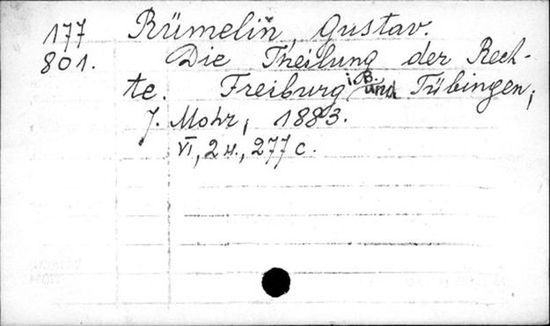 177 Rümelin, Gustav.
801. Die Theilung der Rech-
te. Freiburg i.B. und Tübingen,
J. Mohr, 1883.
VI, 2 н., 277 с.